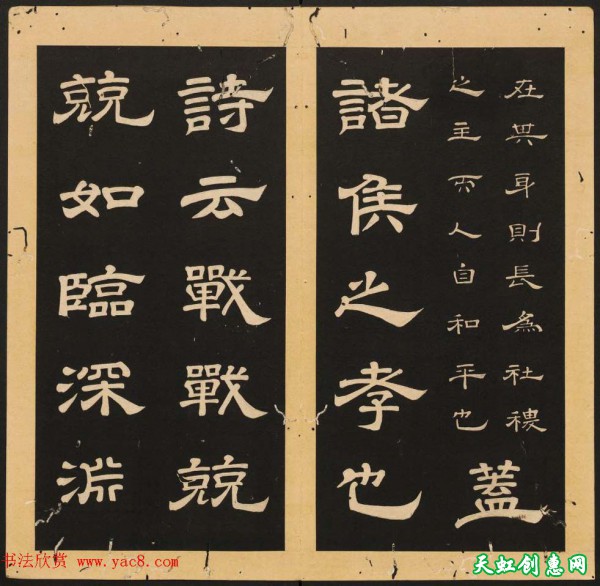 在其身則長爲社稷
之主而人自和平也
蓋
諸侯之孝也
詩云戰戰兢
兢如臨深淵
书法欣赏 www.yac8.com
天虹创惠网